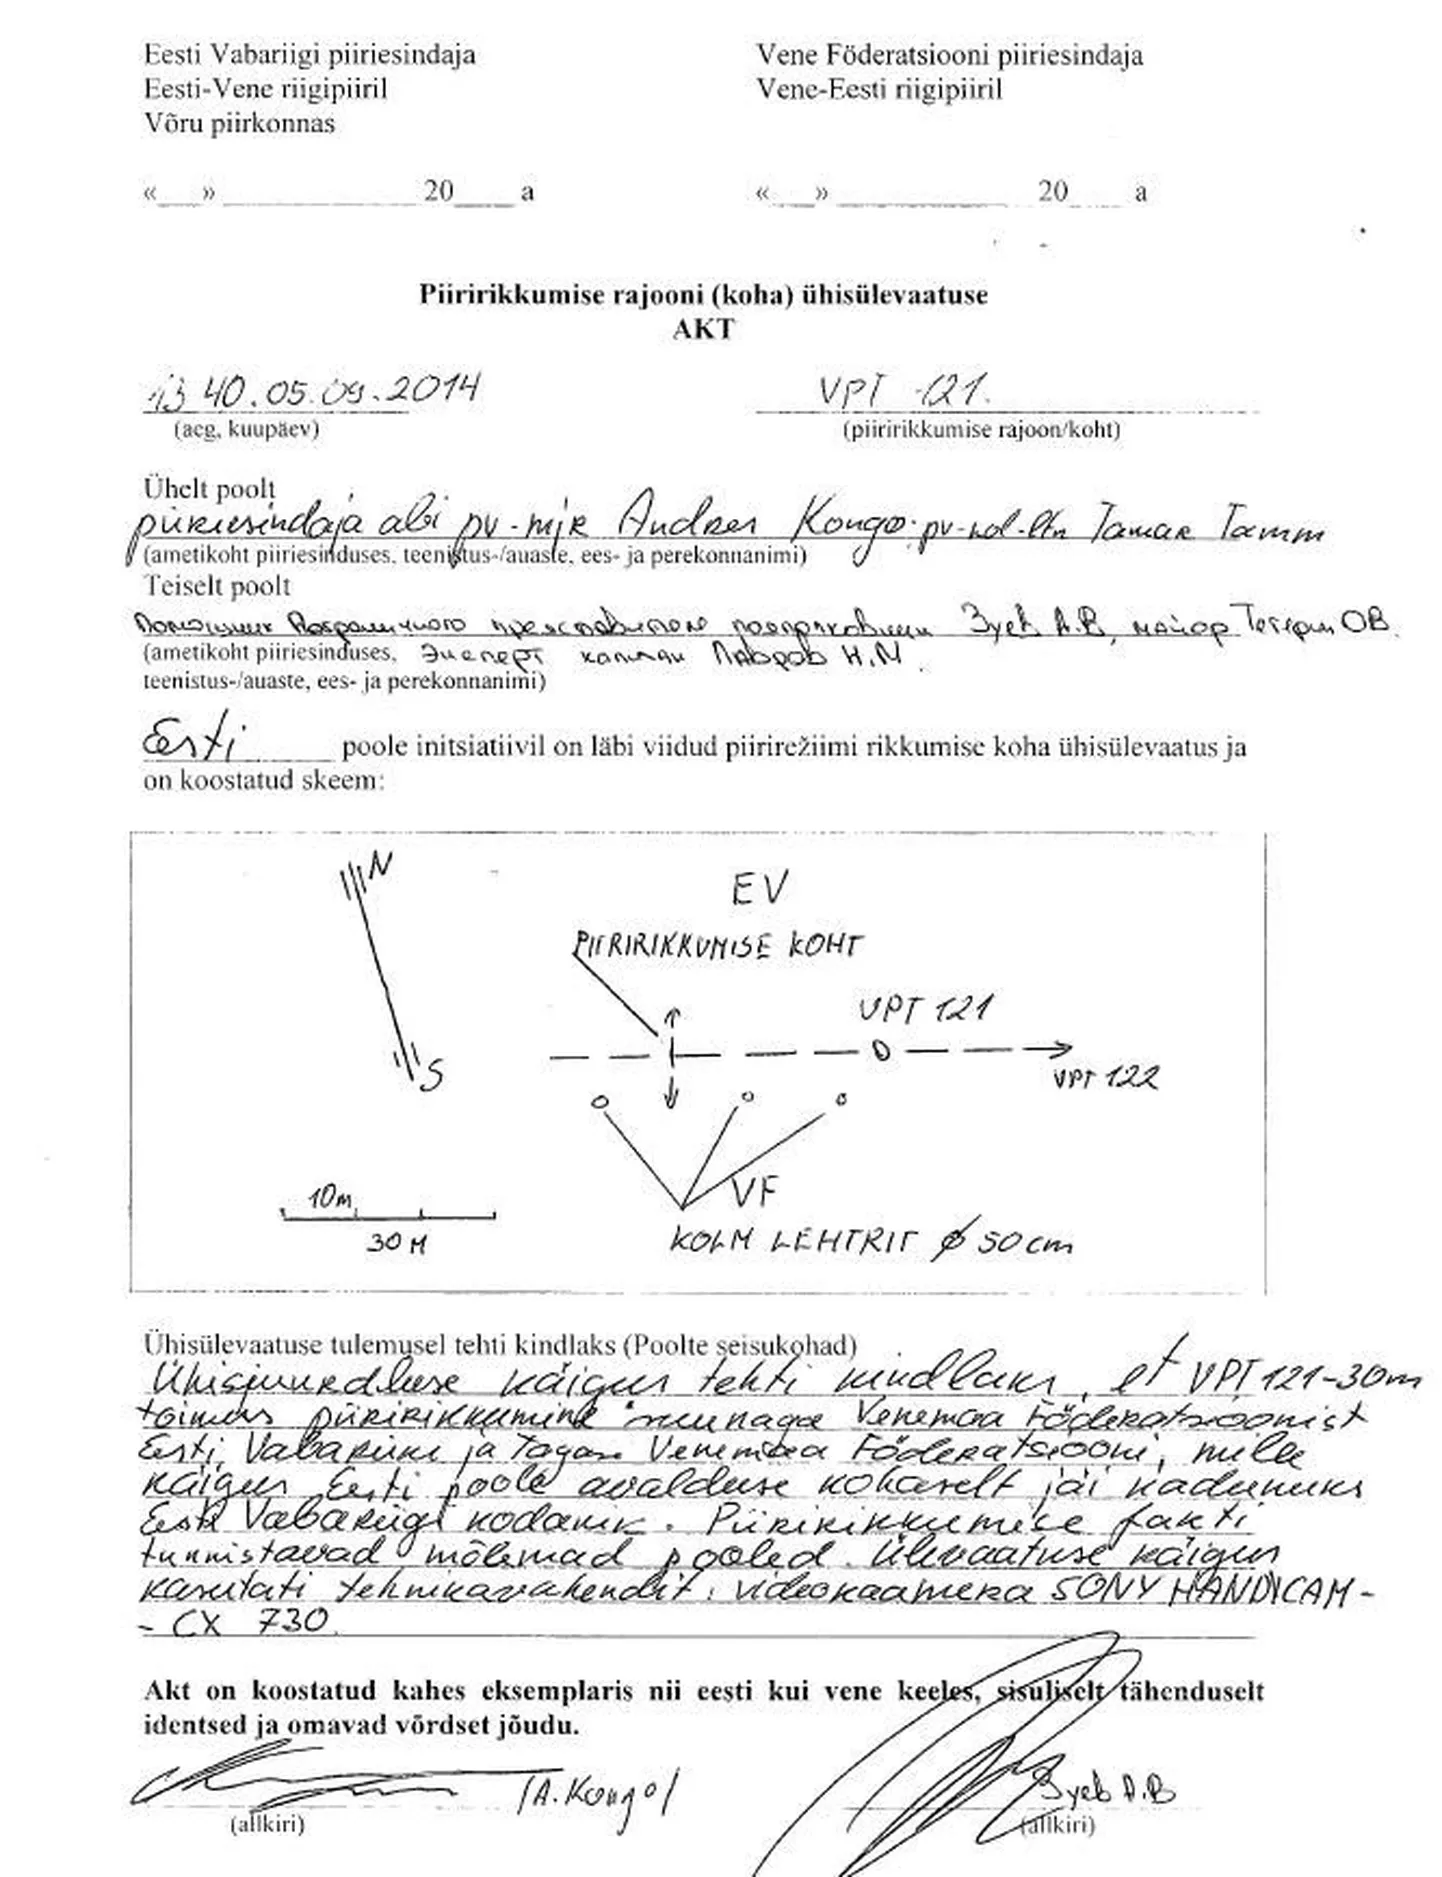 Eesti Vabariigi piiriesindaja
Eesti-Vene riigipiiril
Võru piirkonnas
Vene Föderatsiooni piiriesindaja
Vene-Eesti riigipiiril
«___» ____________ 20____ a
«___» ____________ 20____ a
Piiririkkumise rajooni (koha) ühisülevaatuse
AKT
13 40. 05. 09. 2014
(aeg, kuupäev)
VPT -121.
(piiririkkumise rajoon/koht)
Ühelt poolt
piiriesindaja abi pv-mjr Andres Kongo; pv-kol-ltn Tamar Tamm
(ametikoht piiriesinduses, teenistus-/auaste, ees- ja perekonnanimi)
Teiselt poolt
Помощник Пограничного представителя подполковник Зуев А.В, майор ОВ.
(ametikoht piiriesinduses, Эксперт капитан Лавров Н.М.
teenistus-/auaste, ees- ja perekonnanimi)
Eesti poole initsiatiivil on läbi viidud piirirežiimi rikkumise koha ühisülevaatus ja
on koostatud skeem:
N
EV
PIIRIRIKKUMISE KOHT
VPT 121
S
VPT 122
10m
VF
30 M
KOLM LEHTRIT Ø 50 cm
Ühisülevaatuse tulemusel tehti kindlaks (Poolte seisukohad)
Ühisjuurdluse käigus tehti kindlaks, et VPT 121-30m
toimus piiririkkumine suunaga Venemaa Föderatsioonist
Eesti Vabariiki ja tagasi Venemaa Föderatsiooni, mille
käigus Eesti poole avalduse kohaselt jäi kadunuks
Eesti Vabariigi kodanik. Piiririkkumise fakti
tunnistavad mõlemad pooled. Ülevaatuse käigus
kasutati tehnikavahendit: videokaamera SONY HANDICAM-
- CX 730.
Akt on koostatud kahes eksemplaris nii eesti kui vene keeles, sisuliselt tähenduselt
identsed ja omavad võrdset jõudu.
/A. Kongo/
Зуев А.В
(allkiri)
(allkiri)